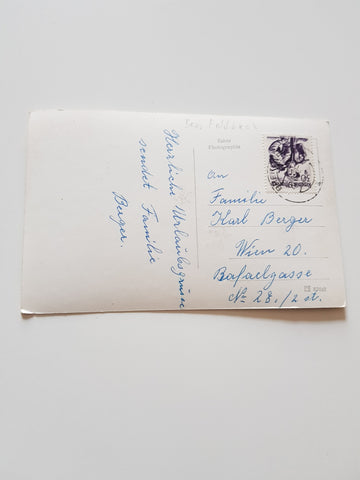 Bez. Feldbach
Echte
Photographie
Herzliche Urlaubsgrüsse
sendet Familie
Berger.
An
Familie
Karl Berger
Wien 20.
Rafaelgasse
No 28./2 st.